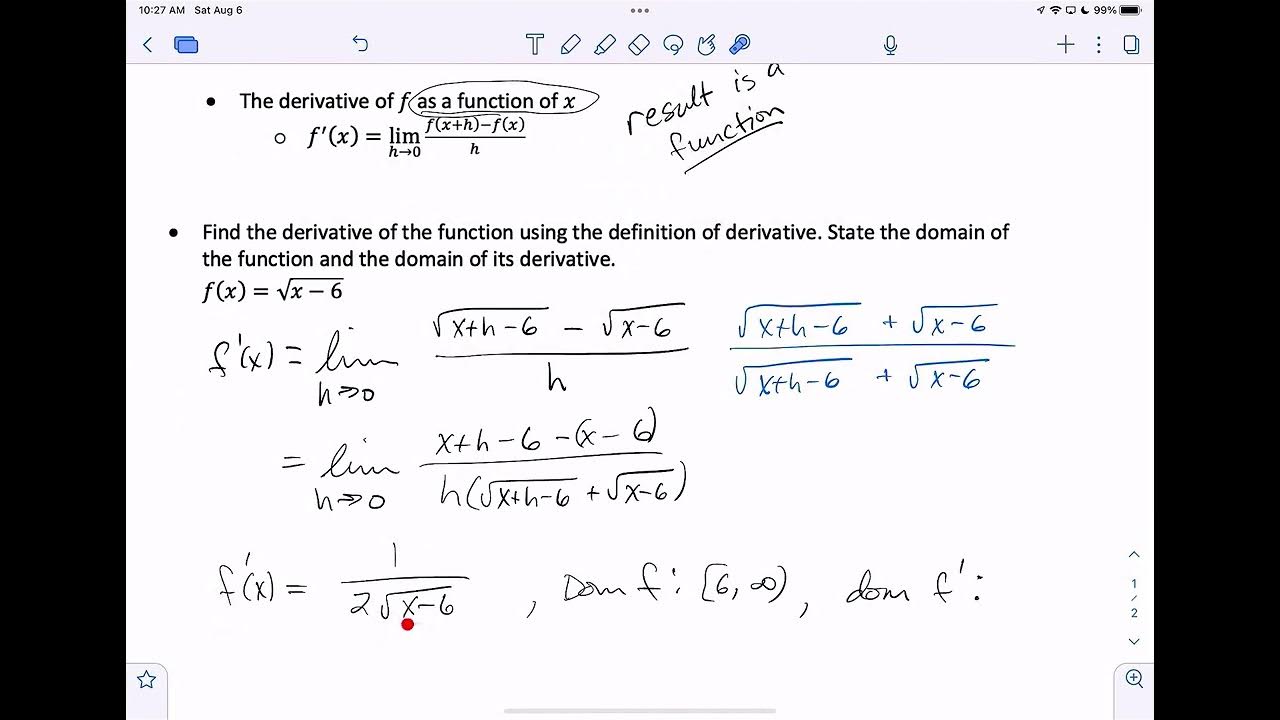 10:27 AM Sat Aug 6
99%
T
• The derivative of f as a function of x
result is a
function
○ f'(x) = lim h→0 f(x+h)−f(x) / h
• Find the derivative of the function using the definition of derivative. State the domain of
the function and the domain of its derivative.
f(x) = √x − 6
f'(x) = lim h→0 √x+h−6 − √x−6 / h √x+h−6 + √x−6 / √x+h−6 + √x−6
= lim h→0 x+h−6 −(x−6) / h(√x+h−6 + √x−6)
f'(x) = 1 / 2√x−6 , Dom f: [6, ∞), dom f':
1
/
2